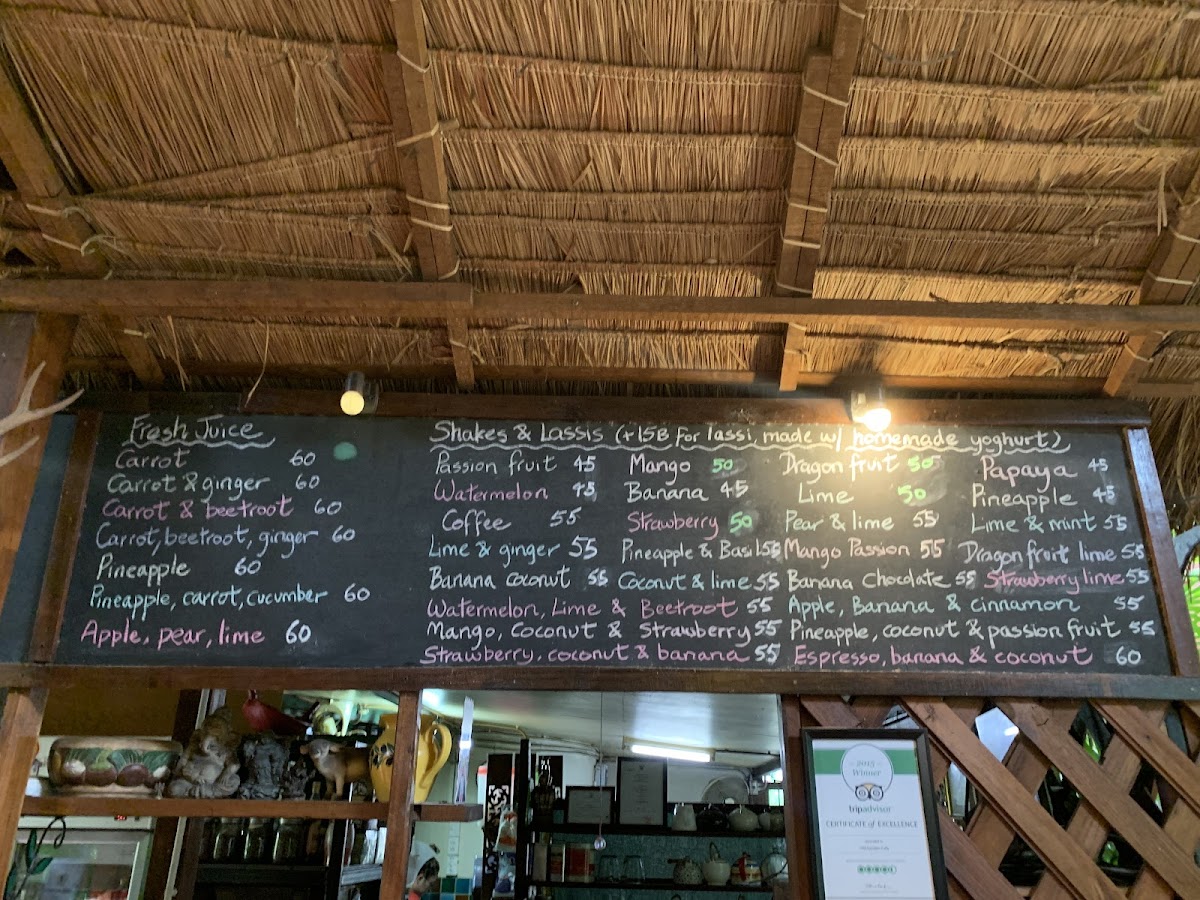 Fresh Juice
Carrot 60
Carrot & ginger 60
Carrot & beetroot 60
Carrot, beetroot, ginger 60
Pineapple 60
Pineapple, carrot, cucumber 60
Apple, pear, lime 60
Shakes & Lassis (+15B for lassi, made w/ homemade yoghurt)
Passion fruit 45 Mango 50 Dragon fruit 50 Papaya 45
Watermelon 45 Banana 45 Lime 50 Pineapple 45
Coffee 55 Strawberry 50 Pear & lime 55 Lime & mint 55
Lime & ginger 55 Pineapple & Basil 55 Mango Passion 55 Dragonfruit lime 55
Banana coconut 55 Coconut & lime 55 Banana Chocolate 55 Strawberry lime 55
Watermelon, Lime & Beetroot 55 Apple, Banana & cinnamon 55
Mango, Coconut & Strawberry 55 Pineapple, coconut & passion fruit 55
Strawberry, coconut & banana 55 Espresso, banana & coconut 60
2015
Winner
tripadvisor
CERTIFICATE of EXCELLENCE